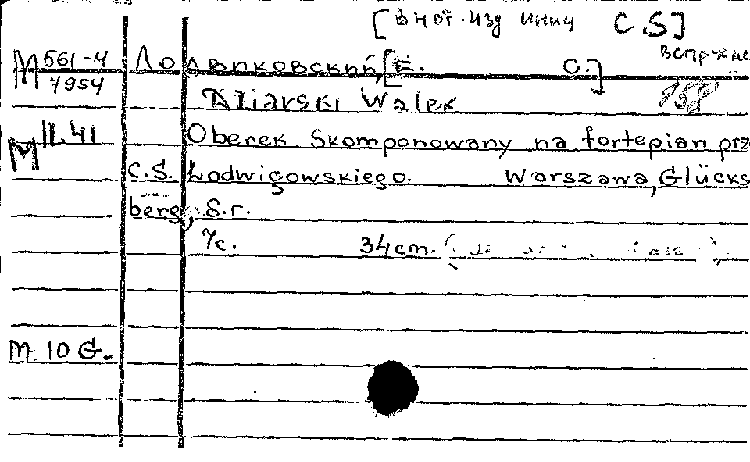 [в нот. изд иниц C.S]
M 561-4 Лодвиковский, [Е. О.]
7954
Dziarski Walek
M II.41 Oberek Skomponowany na fortepian prz
C.S. Ładwigowskiego. Warszawa, Glücks
berg, S.r.
7c. 34cm. (
M. 10 G.